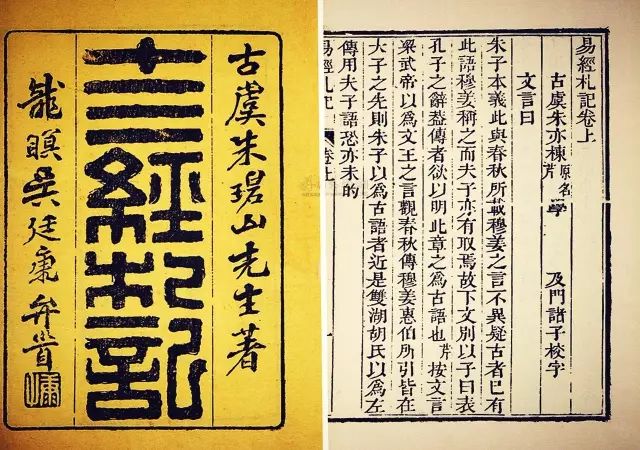 古虞朱碧山先生著
十三經札記
龍瞑吳廷康弁首
易經札記卷上
古虞朱亦棟原名芹學 及門諸子校字
文言曰
朱子本義此與春秋所載穆姜之言不異疑古者已有
此語穆姜稱之而夫子亦有取焉故下文別以子曰表
孔子之辭葢傳者欲以明此章之爲古語也芹按文言
梁武帝以爲文王之言觀春秋傳穆姜惠伯所引皆在
夫子之先則朱子以爲古語者近是雙湖胡氏以爲左
傳用夫子語恐亦未的
易經札記 卷上